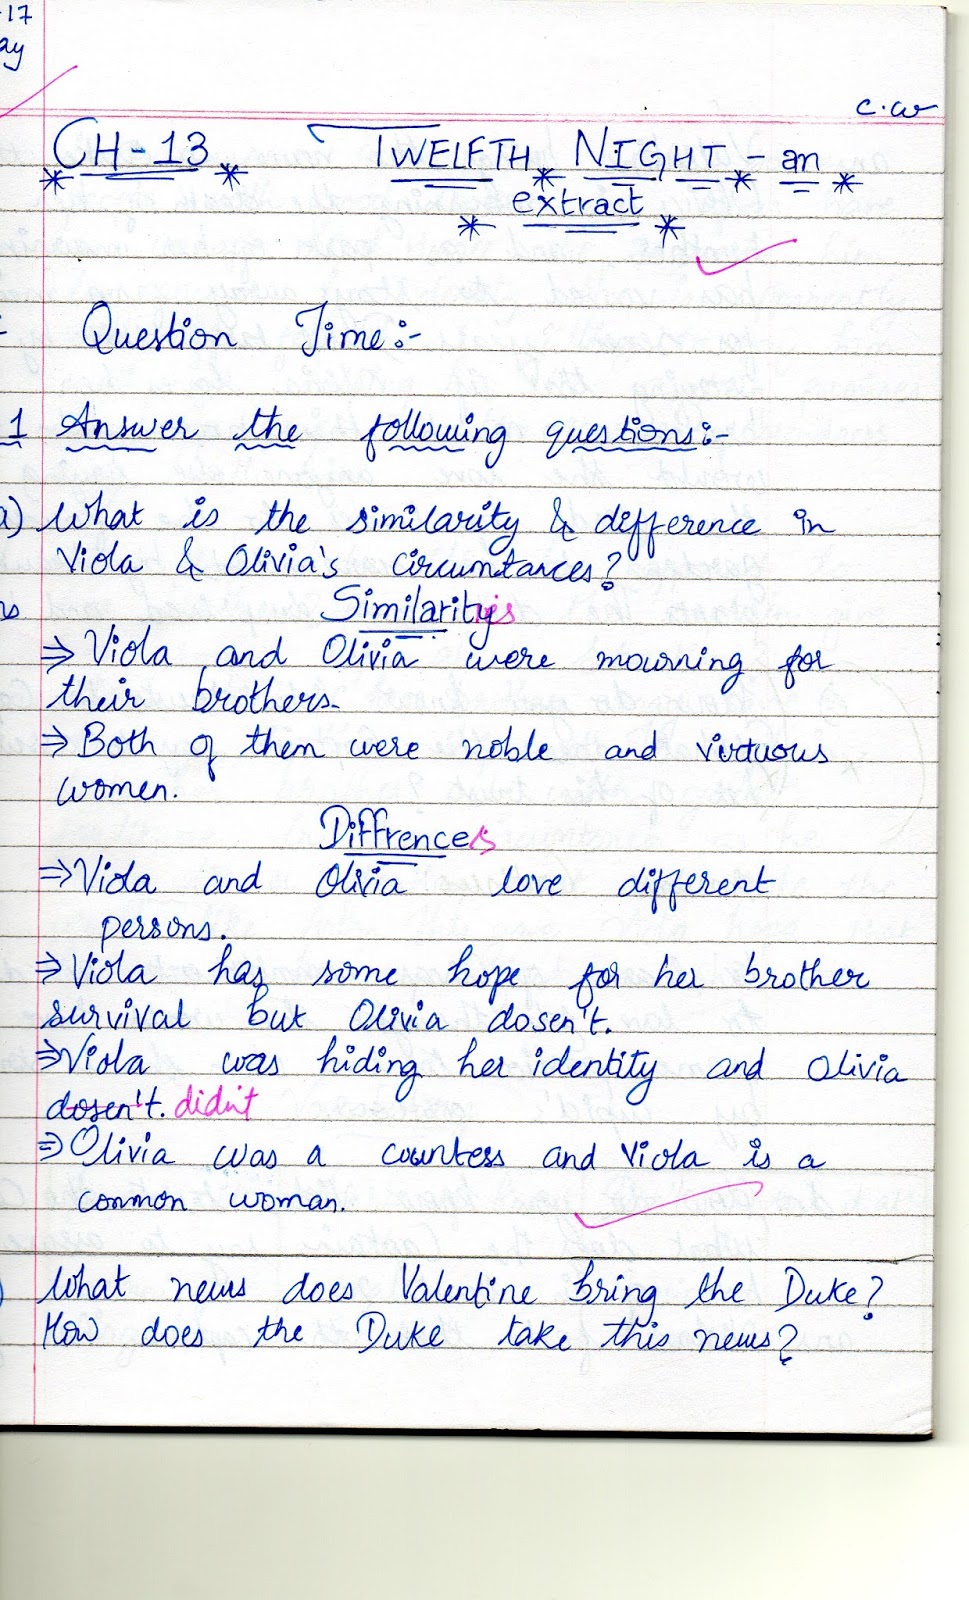 -17
ay
C.W
CH-13 TWELFTH NIGHT - an
extract
Question Time:-
1 Answer the following questions:-
a) What is the similarity & difference in
Viola & Olivia's circumtances?
Similarityies
⇒ Viola and Olivia were mourning for
their brothers.
⇒ Both of them were noble and virtuous
women.
Diffrences
⇒ Viola and Olivia love different
persons.
⇒ Viola has some hope for her brother
survival but Olivia dosen't.
⇒ Viola was hiding her identity and Olivia
dosen't. didn't
⇒ Olivia was a countess and Viola is a
common woman.
) What news does Valentine bring the Duke?
How does the Duke take this news?